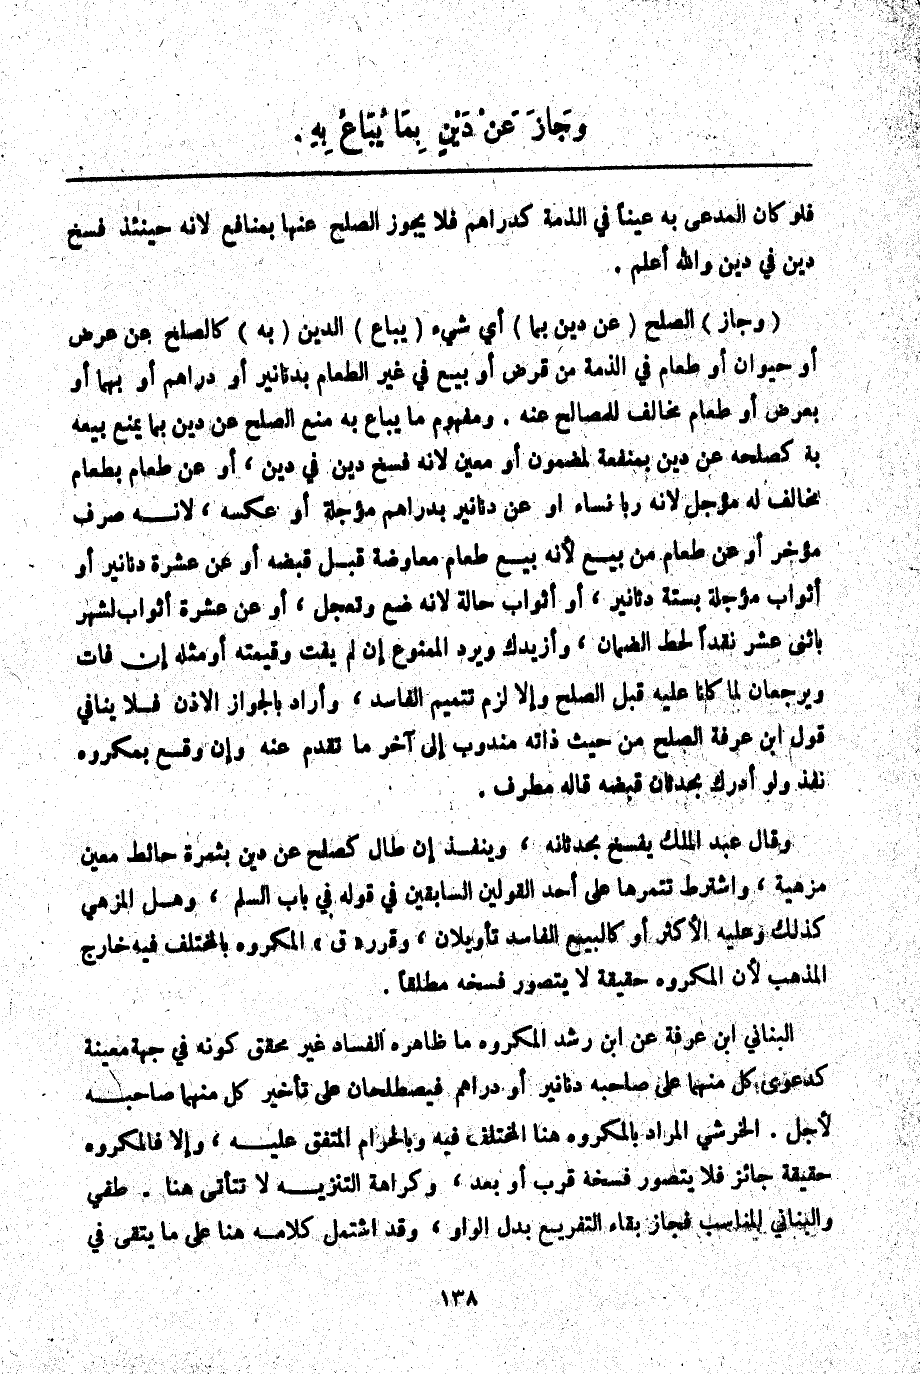 وجَازَ عَنْ دَيْنٍ بِمَا يُبَاعُ بِهِ .
فلو كان المدعى به عيناً في الذمة كدراهم فلا يجوز الصلح عنها بمنافع لانه حينئذ فسخ
دين في دين والله أعلم .
( وجاز ) الصلح ( عن دين بما ) أي شيء ( يباع ) الدين ( به ) كالصلح عن عرض
أو حيوان أو طعام في الذمة من قرض أو بيع في غير الطعام بدنانير أو دراهم أو بهما أو
بعرض أو طعام مخالف للمصالح عنه . ومفهوم ما يباع به منع الصلح عن دين بما يمنع بيعه
به كصلحه عن دين بمنفعة لمضمون أو معين لانه فسخ دين في دين ، أو عن طعام بطعام
مخالف له مؤجل لانه ربا نساء او عن دنانير بدراهم مؤجلة أو عكسه ، لانــه صرف
مؤخر أو عن طعام من بيــع لأنه بيــع طعام معاوضة قبــل قبضه أو عن عشرة دنانير أو
أثواب مؤجلة بستة دنانير ، أو أثواب حالة لانه ضع وتعجل ، أو عن عشرة أثواب لشهر
باثنى عشر نقداً لحط الضمان ، وأزيدك ويرد الممنوع إن لم يفت وقيمته أو مثله إن فات
ويرجعان لما كانا عليه قبل الصلح وإلا لزم تتميم الفاسد ، وأراد بالجواز الاذن فــلا ينافي
قول ابن عرفة الصلح من حيث ذاته مندوب إلى آخر ما تقدم عنه وإن وقــع بمكروه
نفذ ولو أدرك بحدثان قبضه قاله مطرف .
وقال عبد الملك يفسخ بحدثانه ، وينفــذ إن طال كصلح عن دين بثمرة حائط معين
مزهية ، واشترط تتمرها على أحد القولين السابقين في قوله في باب السلم ، وهــل المزهي
كذلك وعليه الأكثر أو كالبيع الفاسد تأويلان ، وقرره « ق » المكروه بالمختلف فيه خارج
المذهب لأن المكروه حقيقة لا يتصور فسخه مطلقاً .
البناني ابن عرفة عن ابن رشد المكروه ما ظاهره الفساد غير محقق كونه في جهة معينة
كدعوى كل منهما على صاحبه دنانير أو دراهم فيصطلحان على تأخير كل منهما صاحبــه
لأجل . الخرشي المراد بالمكروه هنا المختلف فيه وبالحرام المتفق عليــه ، وإلا فالمكروه
حقيقة جائز فلا يتصور فسخة قرب أو بعد ، وكراهة التنزيــه لا تتأتى هنا . طفي
والبناني المناسب فجاز بقاء التفريــع بدل الواو ، وقد اشتمل كلامــه هنا على ما يتقى في
١٣٨